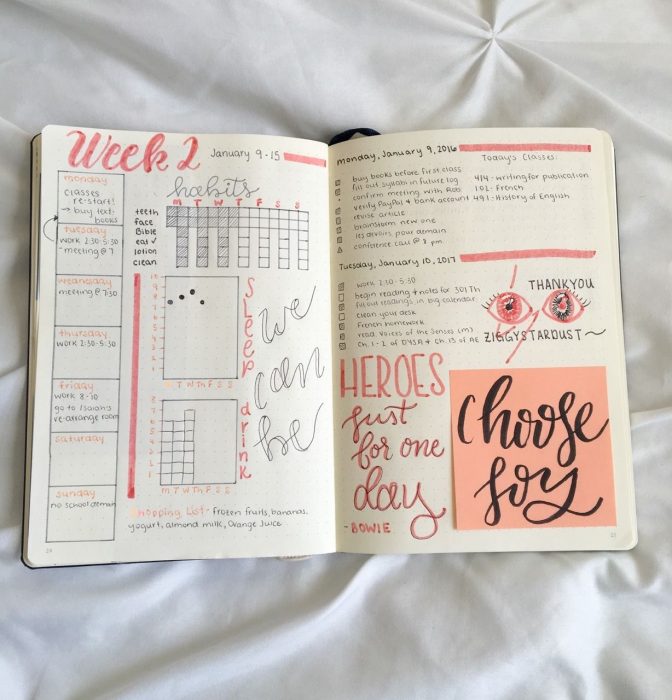 Week 2 January 9-15
monday
classes
re-start!
→ buy text
books
tuesday
work 2:30-5:30
-meeting @ 7
wednesday
meeting @ 7:30
thursday
work 2:30-5:30
friday
work 8-10
go to Isaiah's
re-arrange room
saturday
sunday
no school demain
habits
M T W T F S S
teeth
face
Bible
eat ✓
lotion
clean
sleep
M T W Th F S S
drink
8
7
6
5
4
3
2
1
M T W Th F S S
Shopping List - frozen fruits, bananas,
yogurt, almond milk, orange juice
we
can
be
monday, January 9, 2016
buy books before first class
fill out syllabi in future log
confirm meeting with Rob
verify PayPal + bank account
revise article
brainstorm new one
les devoirs pour demain
conference call @ 8 pm
Today's Classes:
414: Writing for publication
102: French
491: History of English
Tuesday, January 10, 2017
work 2:30-5:30
begin reading + notes for 301 Th
fill out readings in big calendar
clean your desk
French homework
read Voices of the Senses (m)
Ch. 1-2 of DYSA + Ch. 13 of AE
THANKYOU
ZIGGYSTARDUST~
HEROES
just
for one
day
-BOWIE
choose
joy